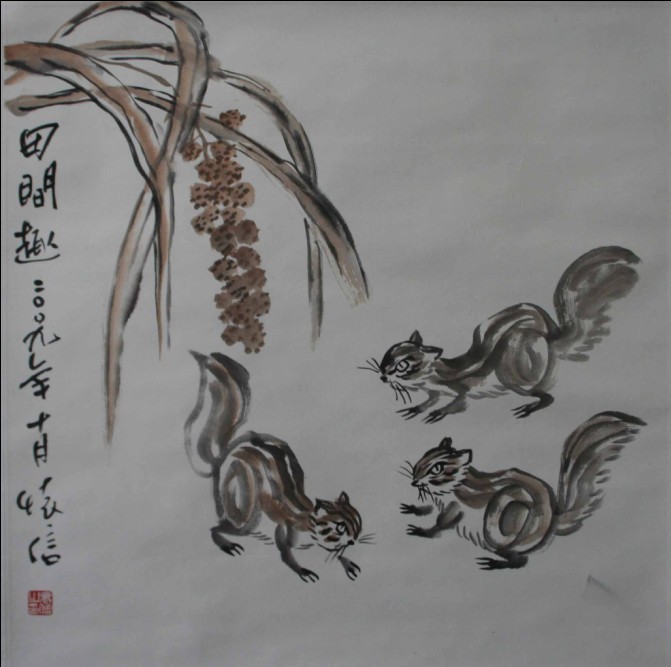 田間趣二〇〇九年十月懷信